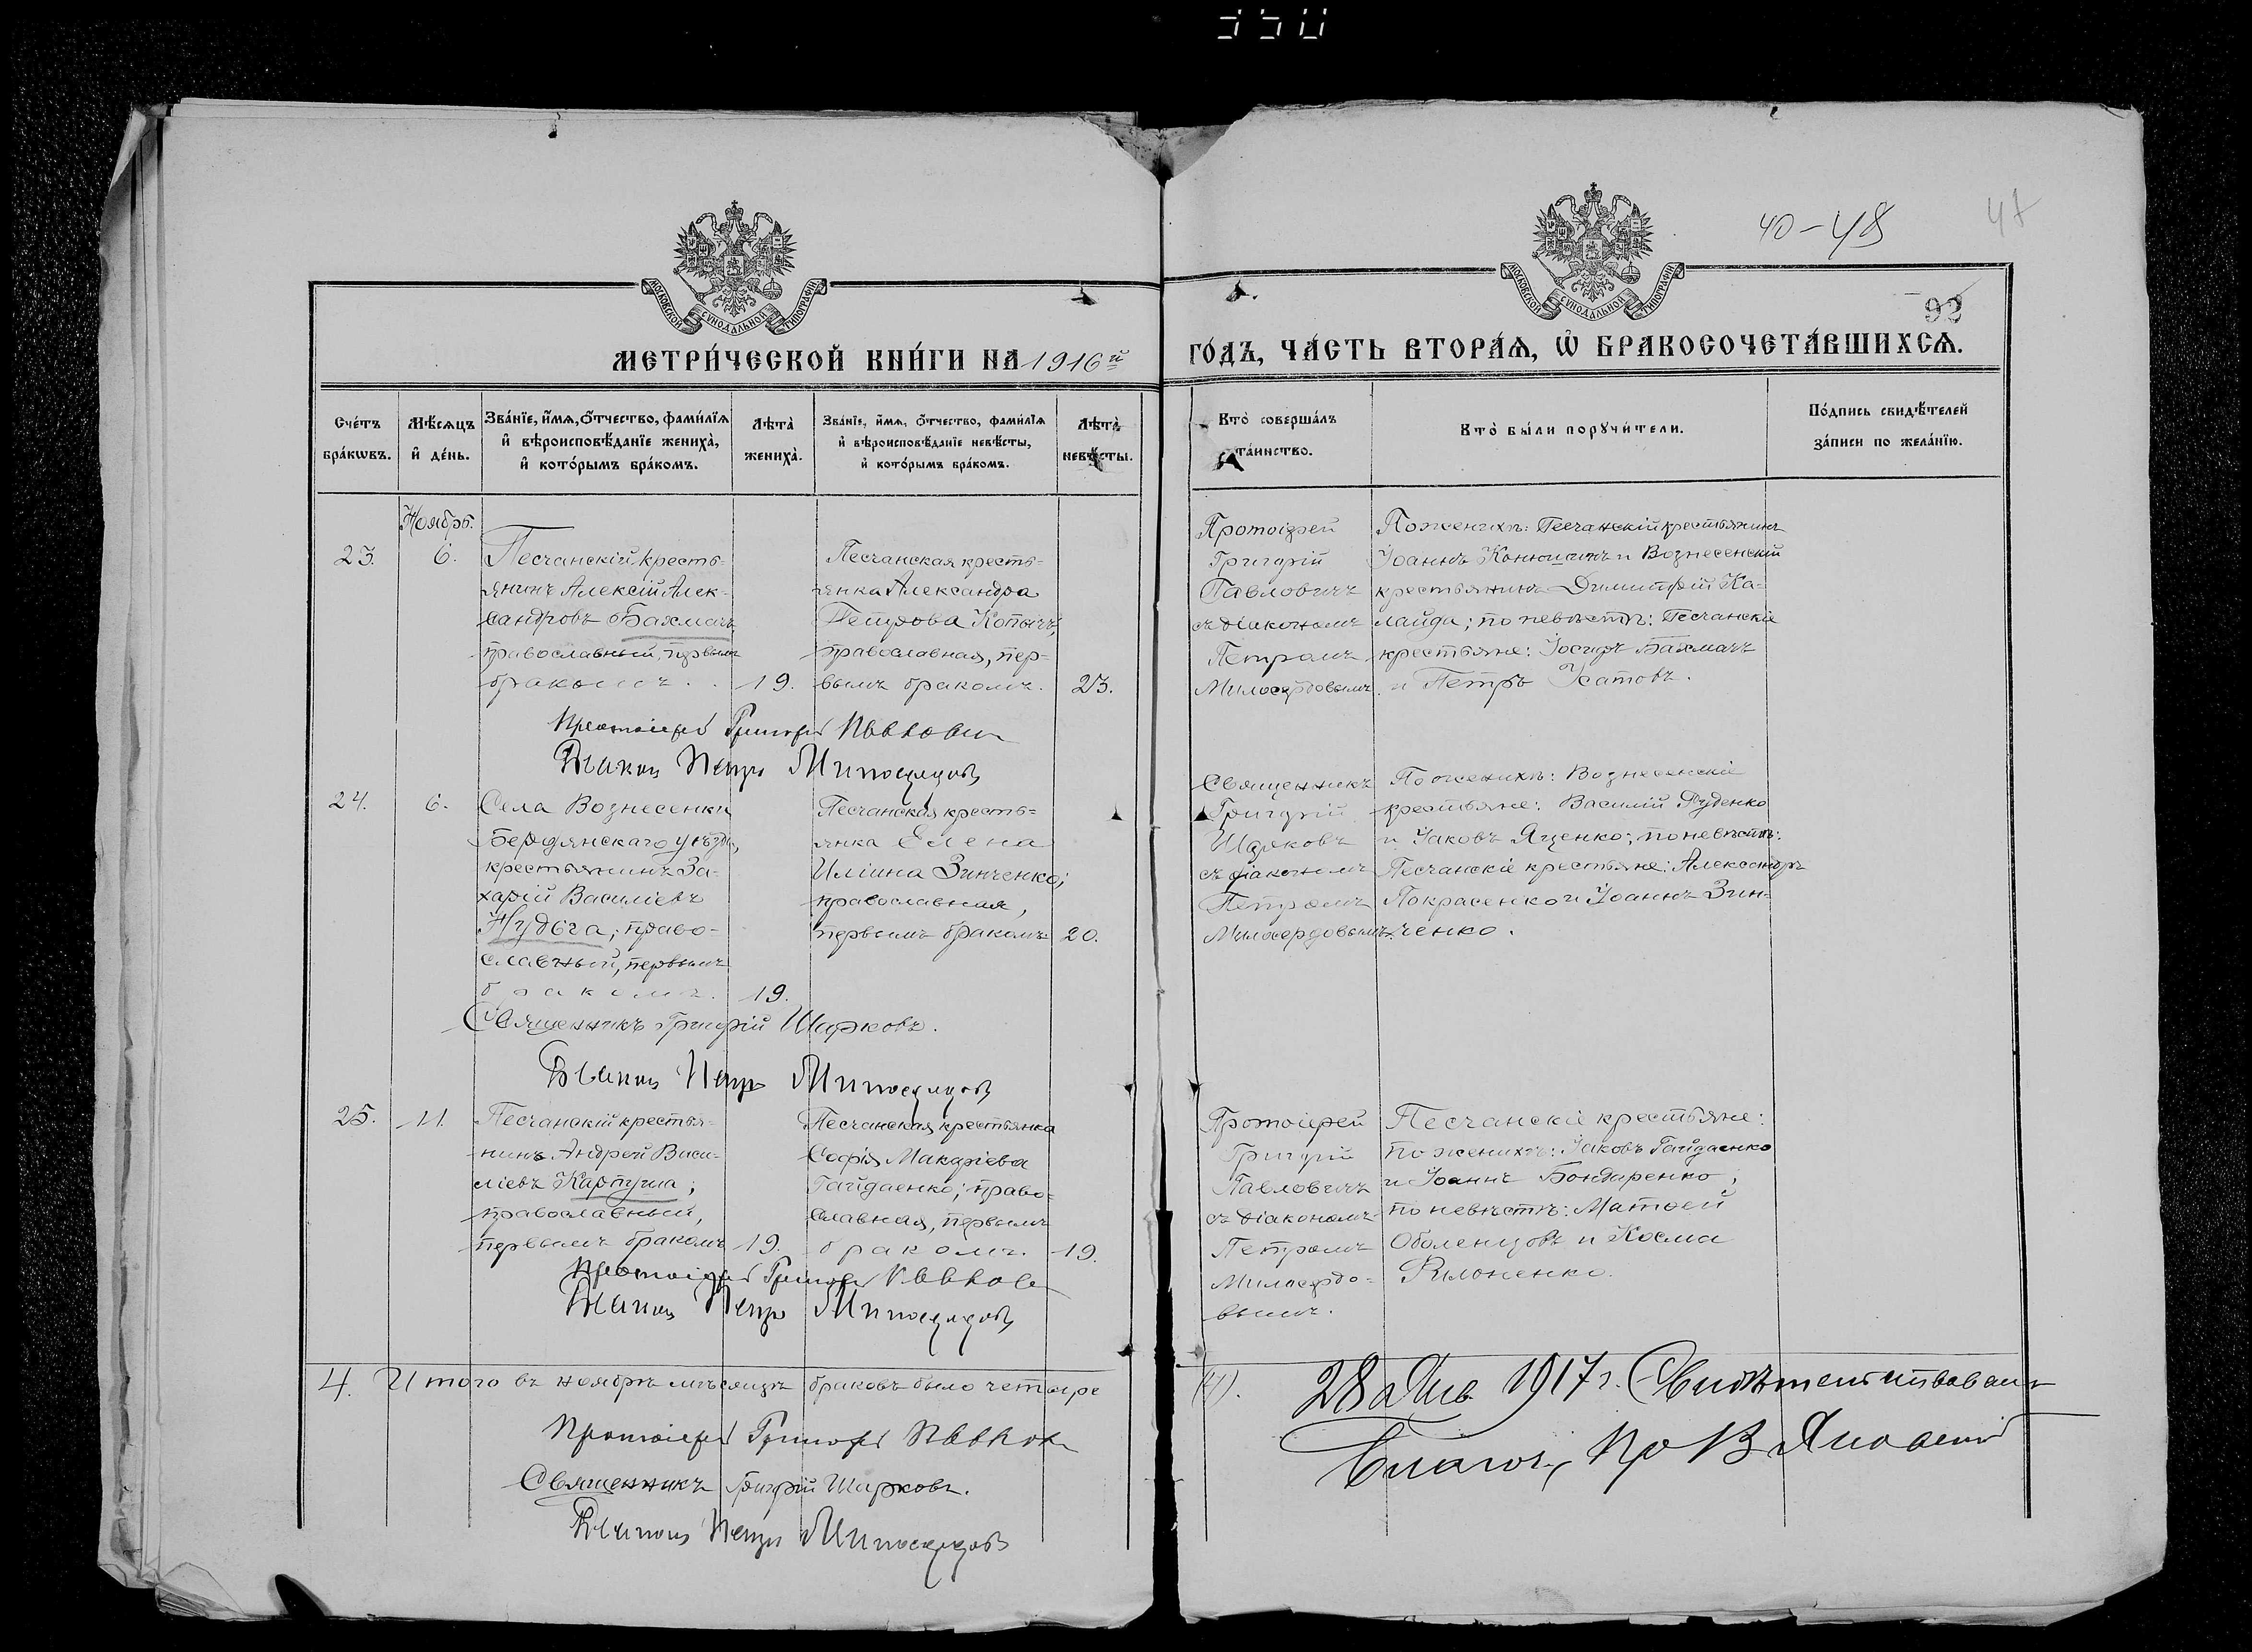 350
40-48
47
МОСКОВСКОЙ СУНОДАЛЬНОЙ ТИПОГРАФІИ
МОСКОВСКОЙ СУНОДАЛЬНОЙ ТИПОГРАФІИ
92
МЕТРИ́ЧЕСКОЙ КНИ́ГИ НА 1916й
ГО́ДЪ, ЧА́СТЬ ВТОРА́Ѧ, Ѡ҆ БРАКОСОЧЕТА́ВШИХСѦ.
Сче́тъ бра́кѡвъ.
Мѣ́сѧцъ и҆ де́нь.
Зва́нїе, и҆́мѧ, ѻ҆́тчество, фамѝлїѧ и҆ вѣроисповѣ́данїе жениха̀, и҆ кото́рымъ бра́комъ.
Лѣта̀ жениха̀.
Зва́нїе, и҆́мѧ, ѻ҆́тчество, фамѝлїѧ и҆ вѣроисповѣ́данїе невѣ́сты, и҆ кото́рымъ бра́комъ.
Лѣта̀ невѣ́сты.
Кто̀ соверша́лъ та́инство.
Кто̀ бы́ли порꙋчи́тели.
По́дпись свидѣ́телей за́писи по жела́нїю.
Ноябрь.
23.
6.
Песчанскій кресть-
янинъ Алексій Алек-
сандровъ Бахмачъ,
православный, первымъ
бракомъ.
19.
Песчанская кресть-
янка Александра
Петрова Копычъ,
православная, пер-
вымъ бракомъ.
23.
Протоіерей
Григорій
Павловичъ
съ діакономъ
Петромъ
Милосердовымъ.
По женихѣ: Песчанскій крестьянинъ
Іоаннъ и Вознесенскій
крестьянинъ Димитрій Ка-
лайда; по невѣстѣ: Песчанскіе
крестьяне: Іосифъ Бахмачъ
и Петръ Усатовъ.
Протоіерей Григорій Павлович
Діакон Петръ Милосердовъ
24.
6.
Села Вознесенки
Бердянскаго уѣзда,
крестьянинъ За-
харій Василіевъ
Нудьга; право-
славный, первымъ
бракомъ.
19.
Песчанская кресть-
янка Елена
Иліина Зинченко;
православная,
первымъ бракомъ
20.
Священникъ
Григорій
Шарковъ
съ діакономъ
Петромъ
Милосердовымъ.
По женихѣ: Вознесенскіе
крестьяне: Василій Руденко
и Іаковъ Яценко; по невѣстѣ:
Песчанскіе крестьяне: Александръ
Покрасенко и Іоаннъ Зин-
ченко.
Священникъ Григорій Шарковъ.
Діакон Петръ Милосердовъ
25.
11.
Песчанскій крестья-
нинъ Андрей Васи-
ліевъ Карпуша;
православный,
первымъ бракомъ
19.
Песчанская крестьянка
Софія Макаріева
Гайдаенко; право-
славная, первымъ
бракомъ.
19.
Протоіерей
Григорій
Павловичъ
съ діакономъ
Петромъ
Милосердо-
вымъ.
Песчанскіе крестьяне:
по женихѣ: Іаковъ Гайдаенко
и Іоаннъ Бондаренко;
по невѣстѣ: Матѳей
Оболенцовъ и Косма
Филоненко.
Протоіерей Григорій Павлович
Діакон Петръ Милосердовъ
4. Итого въ ноябрѣ мѣсяцѣ браковъ было четыре (4).
Протоіерей Григорій Павлович
Священникъ Григорій Шарковъ.
Діакон Петръ Милосердовъ
28 Янв. 1917 г. Свидѣтельствовалъ
Благоч., Пр В